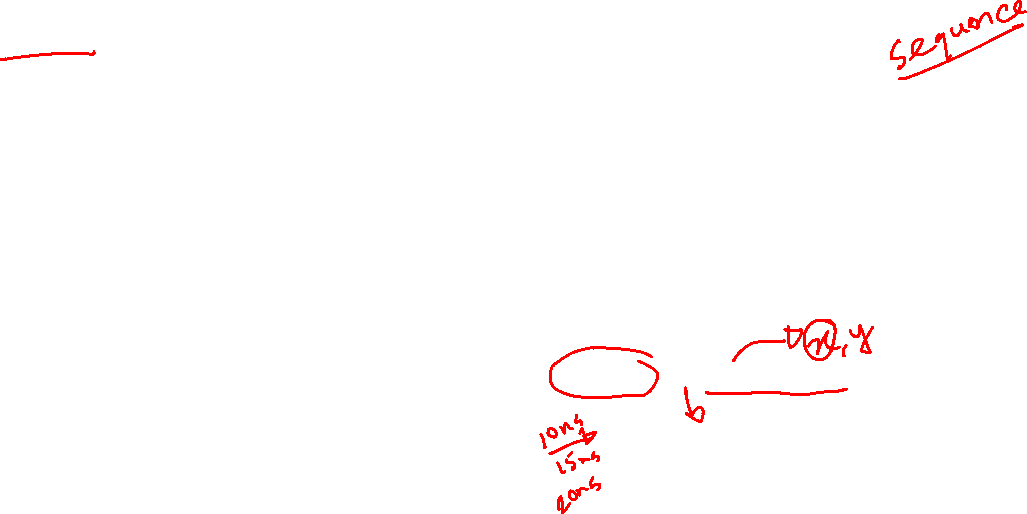 sequence
x, y
10ns
15ns
20ns